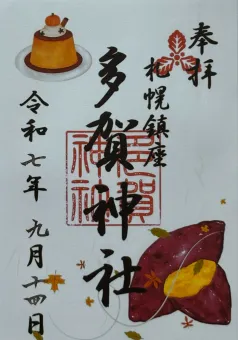 奉拝
札幌鎮座
多賀神社
令和七年九月十四日